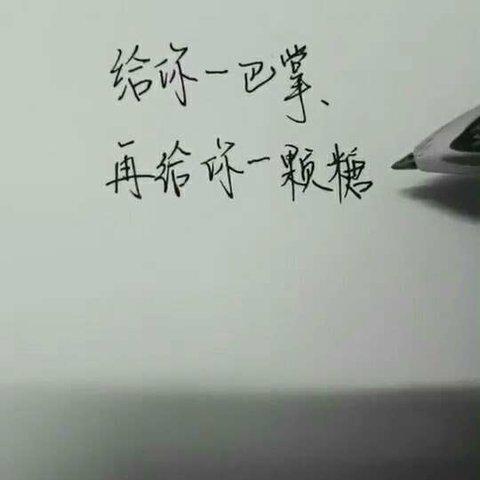 给你一巴掌、
再给你一颗糖